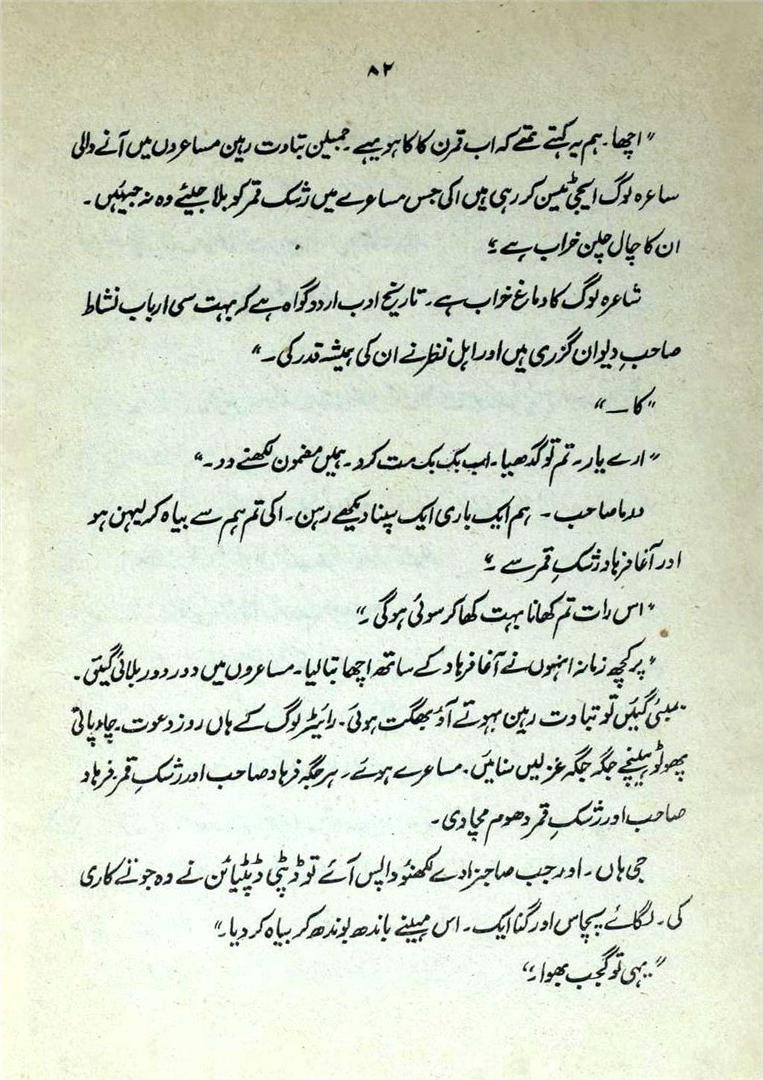 ۸۲
"اچھا۔ ہم یہ کہتے تھے کہ اب قمرن کا کا ہوئیہے۔ جمیلین بتاوت رہین مساعروں میں آنے والی
ساعرہ لوگ ایجی ٹیسن کر رہی ہیں اکی جس مساعرے میں رشک قمر کو بلا جیئے وہ نہ جیہیں۔
ان کا چال چلن خراب ہے۔"
شاعرہ لوگ کا دماغ خراب ہے۔ تاریخ ادب اردو گواہ ہے کہ بہت سی ارباب نشاط
صاحبِ دیوان گزری ہیں اور اہل نظر نے ان کی ہمیشہ قدر کی۔"
"کا —"
"ارے یار۔ تم تو گدھیا۔ اب بک بک مت کرو۔ ہمیں مضمون لکھنے دو۔"
ورما صاحب۔ ہم ایک باری ایک سپنا دیکھے رہن۔ اکی تم ہم سے بیاہ کر لیہن ہو
اور آغا فرہاد رشکِ قمر سے۔"
"اس رات تم کھانا بہت کھا کر سوئی ہوگی۔"
"پر کچھ زمانہ انہوں نے آغا فرہاد کے ساتھ اچھا بتا لیا۔ مساعروں میں دور دور بلائی گیئں۔
بمبئی گیئں تو بتاوت رہین بہوتے آؤ بھگت ہوئی۔ رائیٹر لوگ کے ہاں روز دعوت۔ چاہ پاٹی
پھوٹو کھینچے جگہ جگہ غزلیں سنایئں۔ مساعرے ہوئے۔ ہر جگہ فرہاد صاحب اور رشکِ قمر۔ فرہاد
صاحب اور رشکِ قمر دھوم مچا دی۔
جی ہاں۔ اور جب صاحبزادے لکھنؤ واپس آئے تو ڈپٹی ڈپٹیائن نے وہ جوتے کاری
کی۔ لگائے پچاس اور گنا ایک۔ اس مہینے باندھ بوندھ کر بیاہ کر دیا۔"
"یہی تو گجب بھوا۔"